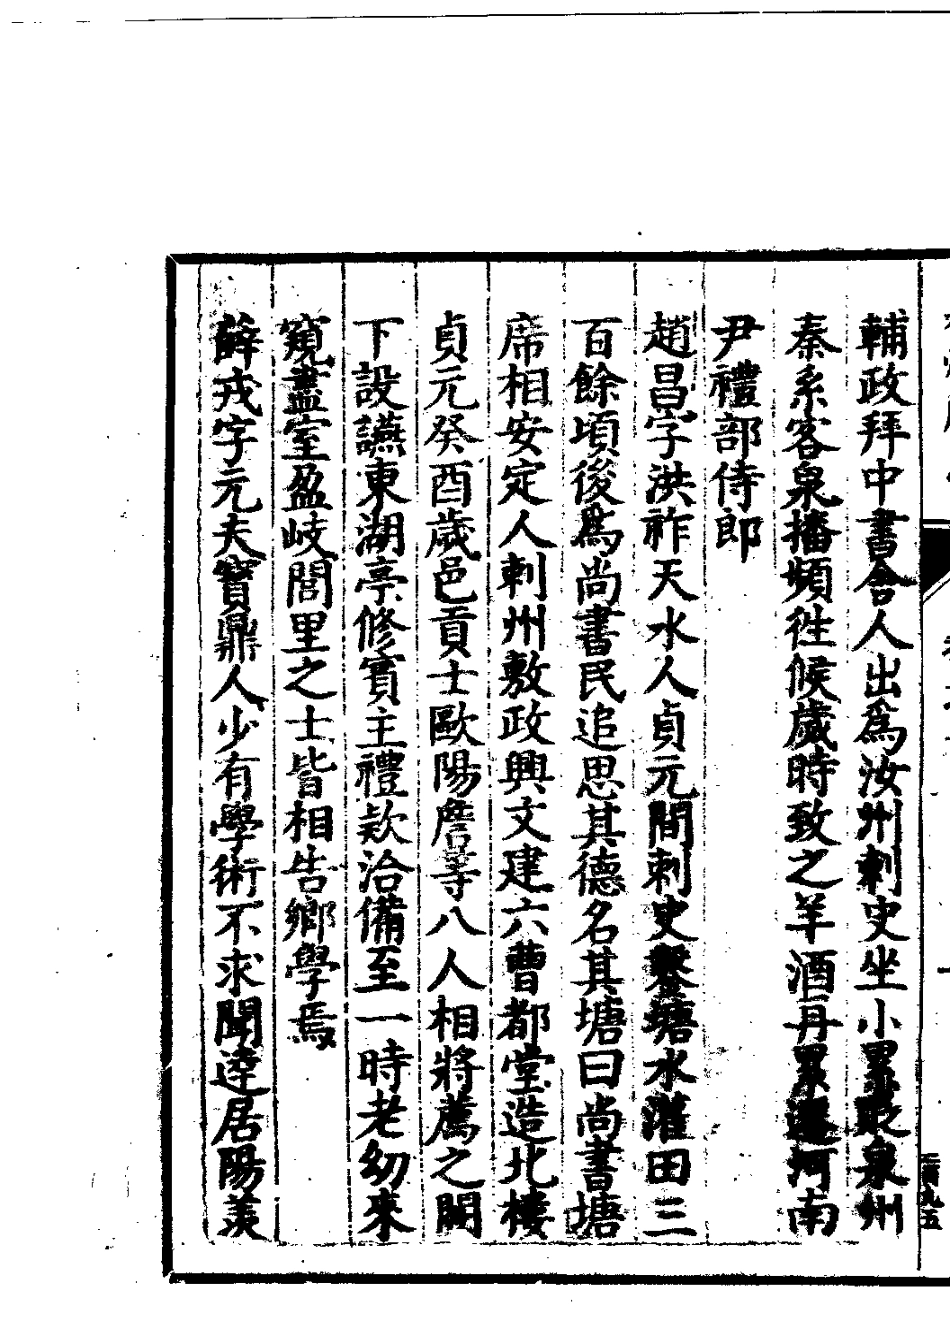 輔政拜中書舍人出爲汝州刺史坐小累貶泉州
秦系客泉播頻徃候歲時致之羊酒丹累遷河南
尹禮部侍郎
趙昌字洪祚天水人貞元間刺史鑿塘水灌田三
百餘頃後爲尚書民追思其德名其塘曰尚書塘
席相安定人刺州敷政興文建六曹都堂造北樓
貞元癸酉歲邑貢士歐陽詹等八人相將薦之闕
下設讌東湖亭修賓主禮欵洽備至一時老幼來
窺盡室盈岐閭里之士皆相告鄉學焉
薛戎字元夫寶鼎人少有學術不求聞逹居陽羡